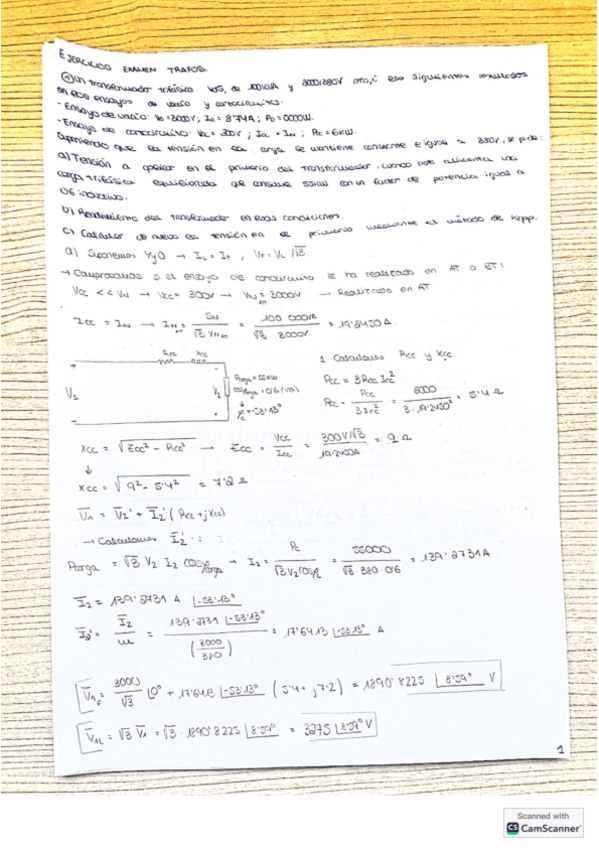 EJERCICIOS EXAMEN TRAFOS.
un transformador trifásico de 100 kVA y 3000/380V
en los ensayos de vacío y cortocircuito:
- Ensayo de vacío: V₀ = 3000V; I₀ = 8'74A; P₀ =
- Ensayo de cortocircuito: Vcc = 300V; Icc = In; Pcc = 6kW.
Suponiendo que la tensión en la carga se mantiene constante e igual a 380V, se pide:
a) Tensión a aplicar en el primario del transformador, cuando este alimenta una
carga trifásica equilibrada que consume 55kW con un factor de potencia igual a
0'6 inductivo.
b) Rendimiento del transformador en esas condiciones.
c) Calcular de nuevo la tensión en el primario mediante el método de Kapp.
a) Suponemos Yy0 → IL = IF , VF = VL/√3
→ Comprobamos si el ensayo de cortocircuito se ha realizado en AT o BT:
Vcc << VN → Vcc = 300V → VN AT = 3000V → Realizado en AT
Icc = IN → IN AT = SN / √3 VN AT = 100 000VA / √3 3000V = 19'2450A.
Rcc Xcc
+ - +
V1 V2' Pcarga = 55kW
cosφcarga = 0'6 (ind)
↓
φc = -53'13°
- -
1 Calculamos Rcc y Xcc
Pcc = 3 Rcc Icc²
Rcc = Pcc / 3 Icc² = 6000 / 3 · 19'2450² = 5'4 Ω
Xcc = √(Zcc² - Rcc²) → Zcc = Vcc / Icc = 300V/√3 / 19'2450A = 9 Ω
↓
Xcc = √(9² - 5'4²) = 7'2 Ω
V̄1 = V̄2' + Ī2' (Rcc + jXcc)
→ Calculamos Ī2' :
Pcarga = √3 V2 I2 cosφcarga → I2 = Pc / √3 V2 cosφc = 55000 / √3 380 0'6 = 139'2731A
Ī2 = 139'2731 A |-53'13°
Ī2' = Ī2 / m = 139'2731 |-53'13° / (3000/380) = 17'6413 |-53'13° A
V̄1F = 3000/√3 |0° + 17'6413 |-53'13° (5'4 + j7'2) = 1890'8225 |8'59° V
V̄1L = √3 V̄1 = √3 · 1890'8225 |8'59° = 3275 |8'59° V
1
Scanned with
CS CamScanner